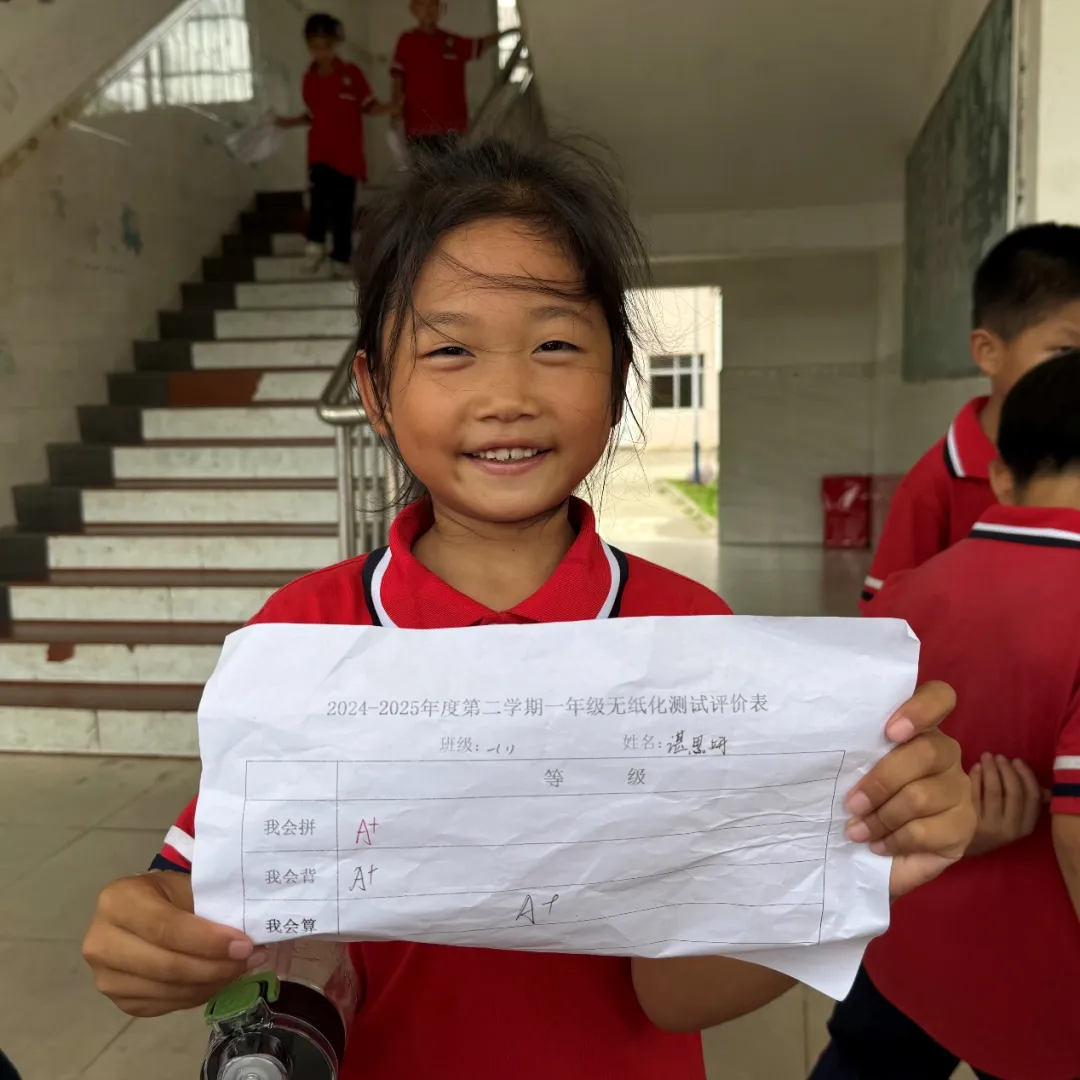 2024-2025年度第二学期一年级无纸化测试评价表
班级：一(1) 姓名：谌思妍
等 级
我会拼 A+
我会背 A+
我会算 A+